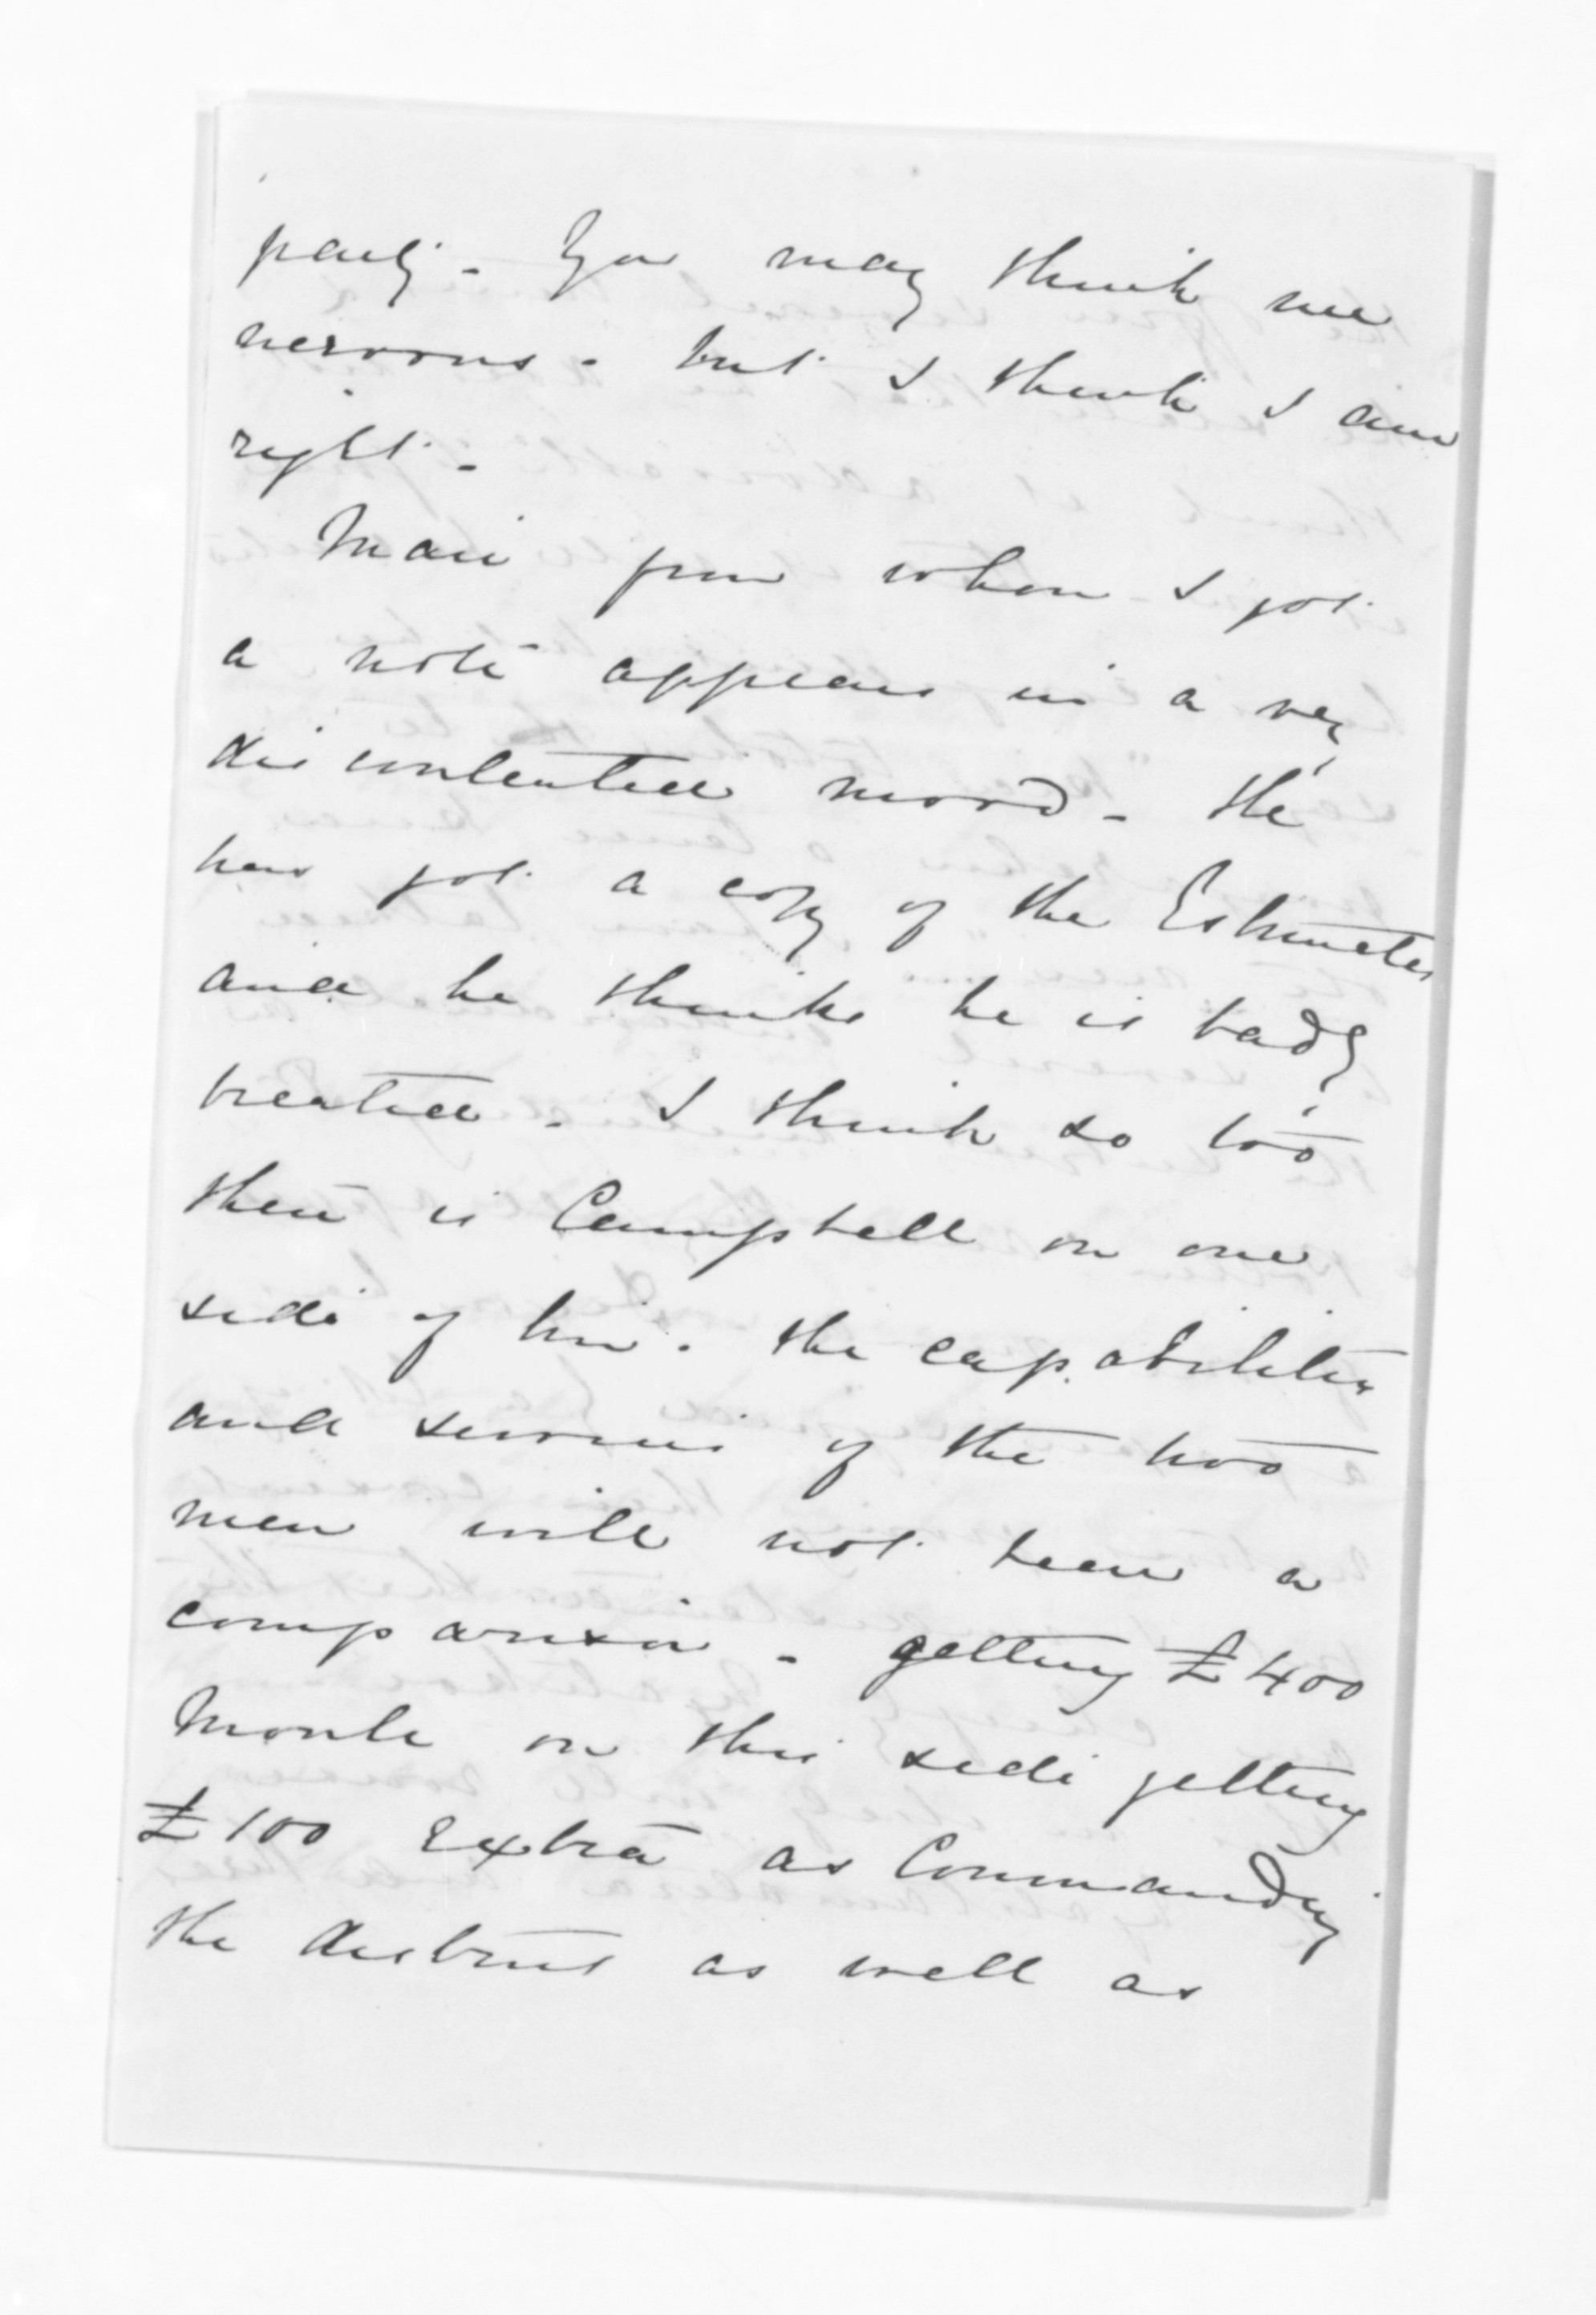 party. You may think me
nervous. but I think I am
right.
Mair from whom I got
a note appears in a very
discontented mood. He
has got a copy of the Estimates
and he thinks he is badly
treated. I think so too
there is Campbell on one
side of him. the capabilities
and services of the two
men will not bear a
comparison. getting £400
Moule on this side getting
£100 extra as Commanding
the district as well as